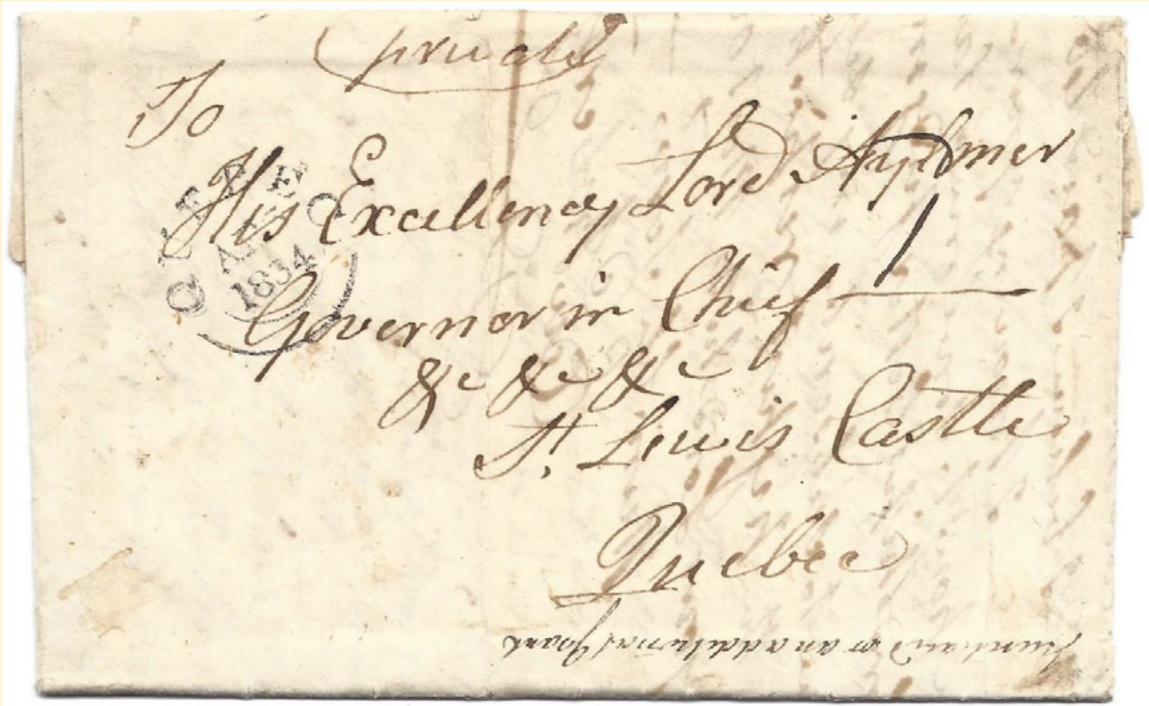 private
To
His Excellency Lord Aylmer
1834
Governor in Chief
&c &c &c
St. Lewis Castle
Quebec
an additional Grant